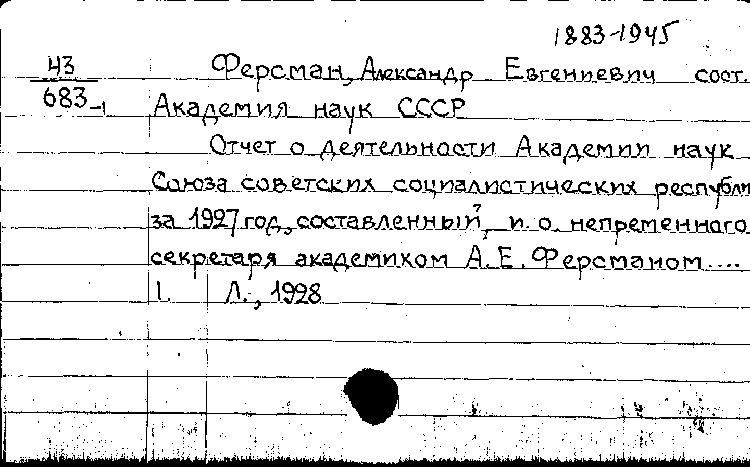 1883-1945
43 Ферсман, Александр Евгениевич сост.
683-1 Академия наук СССР
Отчет о деятельности Академии наук
Союза советских социалистических республи
за 1927 год, составленный, и. о. непременного
секретаря академиком А. Е. Ферсманом....
I. Л., 1928